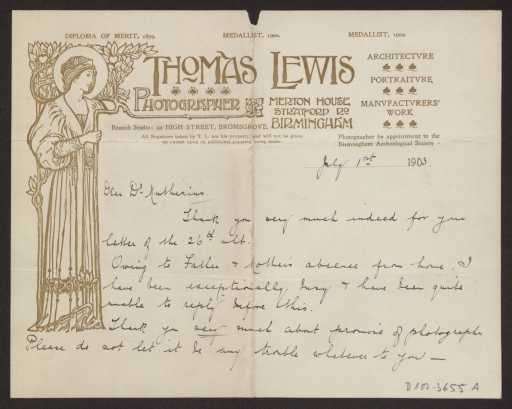 DIPLOMA OF MERIT, 1899. MEDALLIST, 1900. MEDALLIST, 1900.
THOMAS LEWIS
PHOTOGRAPHER
MERTON HOUSE
STRATFORD RD
BIRMINGHAM
ARCHITECTVRE
PORTRAITVRE
MANVFACTVRERS'
WORK
Branch Studio: 92 HIGH STREET, BROMSGROVE.
All Negatives taken by T. L. are his property, and will not be given
Photographer by appointment to the
Birmingham Archæological Society
July 1st 1903
Dear Dr
Thank you very much indeed for your
letter of the 26th ult.
Owing to Father & Mother's absence from home, I
have been exceptionally busy & have been quite
unable to reply before this.
Thank you very much about promise of photographs
Please do not let it be any trouble whatever to you —
D101-3655 A